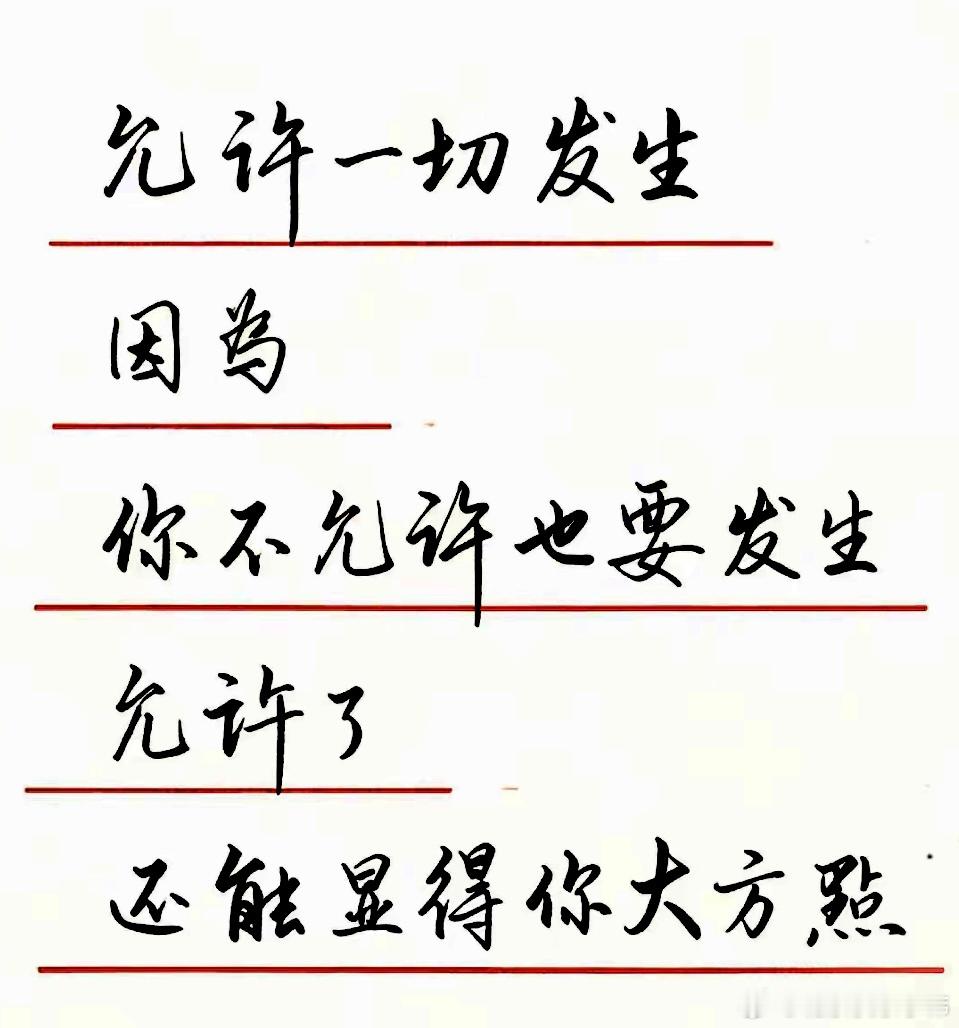 允许一切发生
因为
你不允许也要发生
允许了
还能显得你大方點